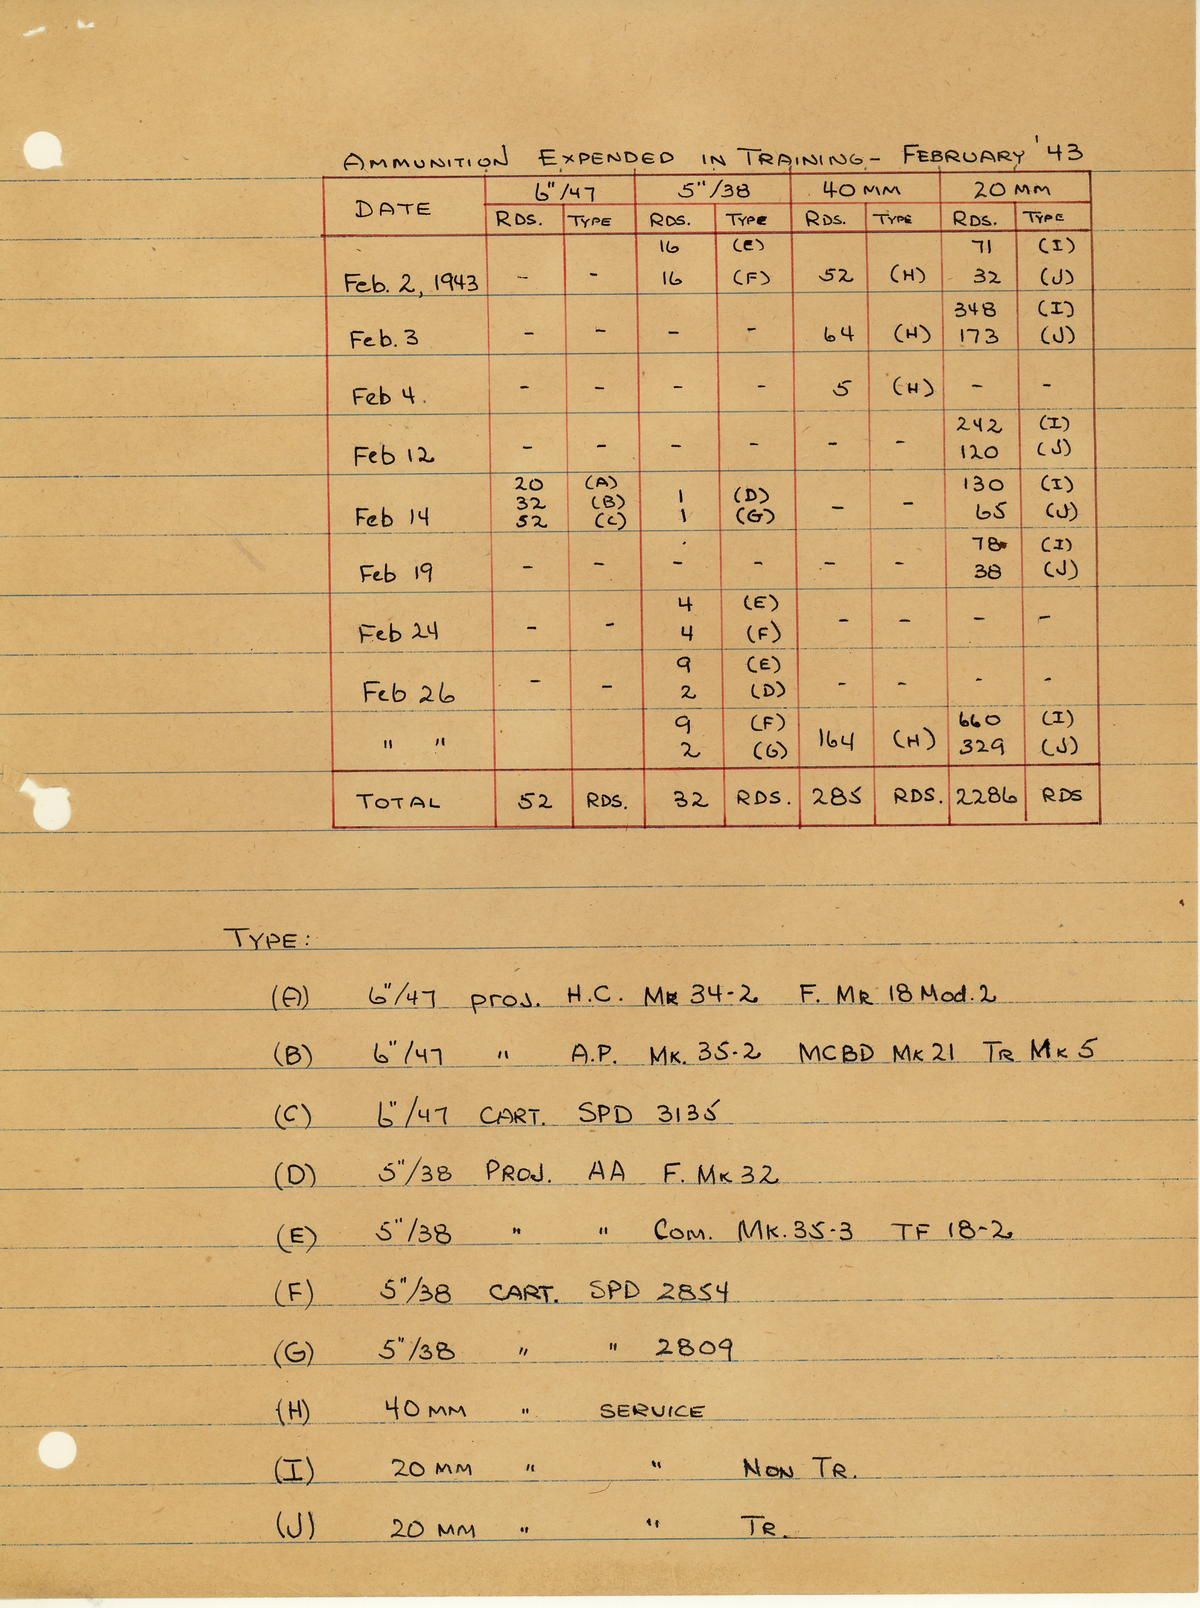 AMMUNITION EXPENDED IN TRAINING - FEBRUARY '43
DATE 6"/47 5"/38 40 MM 20 MM
RDS. TYPE RDS. TYPE RDS. TYPE RDS. TYPE
16 (E) 71 (I)
Feb. 2, 1943 - - 16 (F) 52 (H) 32 (J)
348 (I)
Feb. 3 - - - - 64 (H) 173 (J)
Feb 4. - - - - 5 (H) - -
242 (I)
Feb 12 - - - - - - 120 (J)
20 (A) 130 (I)
32 (B) 1 (D)
Feb 14 52 (C) 1 (G) - - 65 (J)
78 (I)
Feb 19 - - - - - - 38 (J)
4 (E)
Feb 24 - - 4 (F) - - - -
9 (E)
Feb 26 - - 2 (D) - - - -
9 (F) 660 (I)
" " 2 (G) 164 (H) 329 (J)
TOTAL 52 RDS. 32 RDS. 285 RDS. 2286 RDS
TYPE:
(A) 6"/47 PROJ. H.C. MK 34-2 F. MK 18 Mod. 2
(B) 6"/47 " A.P. MK. 35-2 MCBD MK 21 TR MK 5
(C) 6"/47 CART. SPD 3135
(D) 5"/38 PROJ. AA F. MK 32
(E) 5"/38 " " COM. MK. 35-3 TF 18-2
(F) 5"/38 CART. SPD 2854
(G) 5"/38 " " 2809
(H) 40 MM " SERVICE
(I) 20 MM " " NON TR.
(J) 20 MM " " TR.